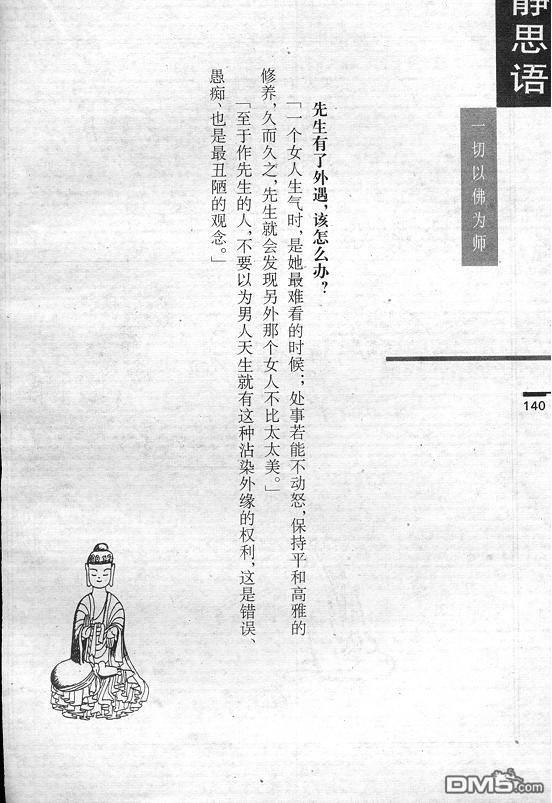 静思语
一切以佛为师
140
先生有了外遇，该怎么办？
「一个女人生气时，是她最难看的时候；处事若能不动怒，保持平和高雅的
修养，久而久之，先生就会发现另外那个女人不比太太美。」
「至于作先生的人，不要以为男人天生就有这种沾染外缘的权利，这是错误、
愚痴、也是最丑陋的观念。」
DM5.com